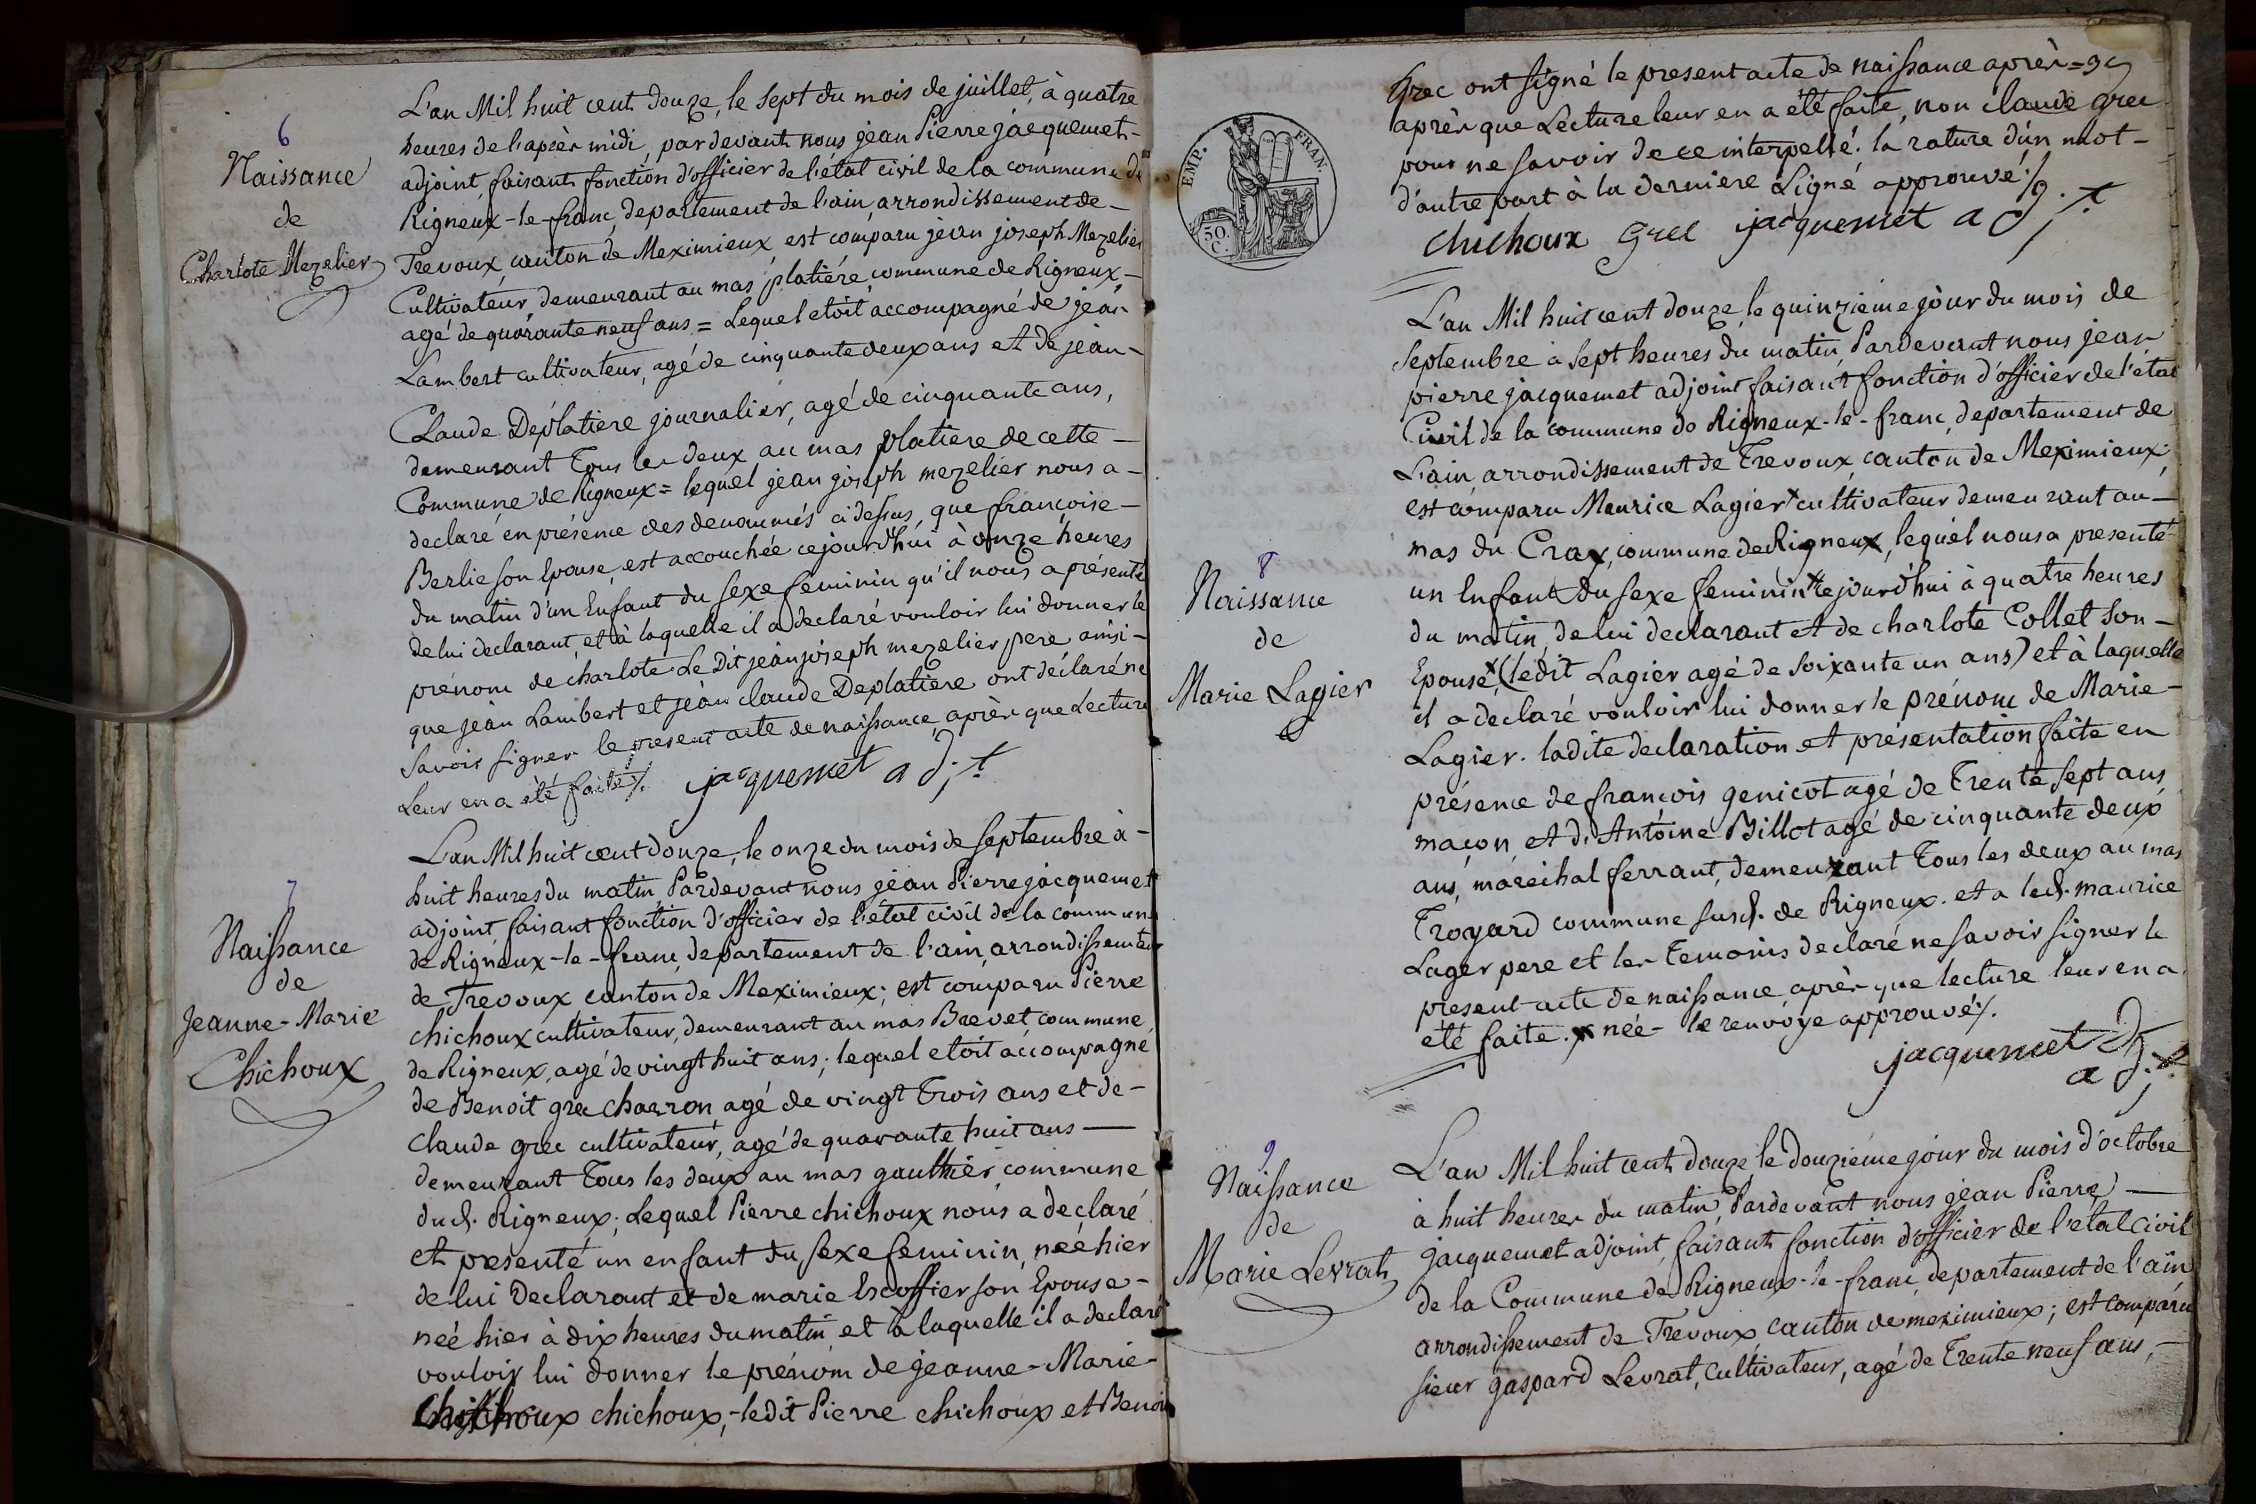 6
Naissance
de
Charlote Mezelier
L'an Mil huit cent douze, le sept du mois de juillet, à quatre
heures de l'après midi, pardevant nous jean Pierre jacquemet-
adjoint faisant fonction d'officier de l'état civil de la commune de
Rigneux-le-franc, departement de l'ain, arrondissement de-
Trevoux, canton de Meximieux, est comparu jean joseph Mezelier
Cultivateur, demeurant au mas platière, commune de Rigneux-
agé de quarante neuf ans = Lequel etoit accompagné de jean
Lambert cultivateur, agé de cinquante deux ans et de jean-
Claude Déplatiere journalier, agé de cinquante ans,
demeurant Tous les deux au mas platiere de cette-
Commune de Rigneux = lequel jean joseph mezelier nous a-
declaré en présence des denommés ci dessus, que françoise-
Berlie son Epouse, est accouchée cejourd'hui à onze heures
du matin d'un Enfant du sexe feminin qu'il nous a présenté
de lui declarant, et à laquelle il a declaré vouloir lui donner le
prénom de charlote Le Dit jean joseph mezelier pere ainsi-
que jean Lambert et jean claude Deplatiere ont déclaré ne
Savoir signer le present acte de naissance, après que Lecture
Leur en a été faite ./. jacquemet adj.t
7
Naissance
de
Jeanne-Marie
Chichoux
L'an Mil huit cent douze, le onze du mois de septembre à-
huit heures du matin, Pardevant nous jean Pierre jacquemet
adjoint, faisant fonction d'officier de l'état civil de la commune
de Rigneux-le-franc, departement de l'ain, arrondissement
de Trevoux, canton de Meximieux; est comparu Pierre
chichoux cultivateur, demeurant au mas Brevet, commune
de Rigneux, agé de vingt huit ans; lequel etoit accompagné
de Benoit grec charron agé de vingt Trois ans et de-
claude grec cultivateur, agé de quarante huit ans-
demeurant Tous les deux au mas gaulthier, commune
dud. Rigneux; Lequel Pierre chichoux nous a declaré
et presenté un enfant du sexe feminin, neé hier
de lui Declarant et de marie Escoffier son Epouse-
neé hier à dix heures du matin et à laquelle il a declaré
vouloir lui donner le prénom de jeanne-Marie-
chichoux, -ledit Pierre chichoux et Benoit
EMP. FRAN.
50.
C.
Grec ont signé le present acte de naissance après =
après que Lecture leur en a été faite, non claude grec
pour ne savoir de ce interpellé. la rature d'un mot-
d'autre part à la derniere Ligne approuvé ./.
chichoux grec jacquemet adj.t
8
Naissance
de
Marie Lagier
L'an Mil huit cent douze, le quinzieme jour du mois de
Septembre à sept heures du matin, Pardevant nous jean
pierre jacquemet adjoint faisant fonction d'officier de l'état
Civil de la commune de Rigneux-le-franc, departement de
L'ain, arrondissement de Trevoux, canton de Meximieux;
est comparu Maurice Lagier cultivateur demeurant au-
mas du Crax, commune de Rigneux, lequel nous a presenté
un Enfant du sexe feminin x cejourd'hui à quatre heures
du matin, de lui declarant et de charlote Collet son-
Epouse, x (ledit Lagier agé de soixante un ans) et à laquelle
il a declaré vouloir lui donner le prénom de Marie-
Lagier. ladite declaration et présentation faite en
présence de françois genicot agé de Trente sept ans,
maçon et d'Antoine Billot agé de cinquante deux
ans, marechal ferrant, demeurant Tous les deux au mas
Troyard commune susd. de Rigneux. et a led. maurice
Lager pere et les Temoins declaré ne savoir signer le
present acte de naissance, après que lecture leur en a
été faite. x née - le renvoye approuvé ./.
jacquemet
adj.t
9
Naissance
de
Marie Levrat
L'an Mil huit cent douze, le douzieme jour du mois d'octobre
à huit heures du matin, Pardevant nous jean Pierre-
jacquemet adjoint, faisant fonction d'officier de l'état civil
de la Commune de Rigneux-le-franc, departement de l'ain
arrondissement de Trevoux, canton de meximieux; est comparu
sieur gaspard Levrat, cultivateur, agé de Trente neuf ans,-